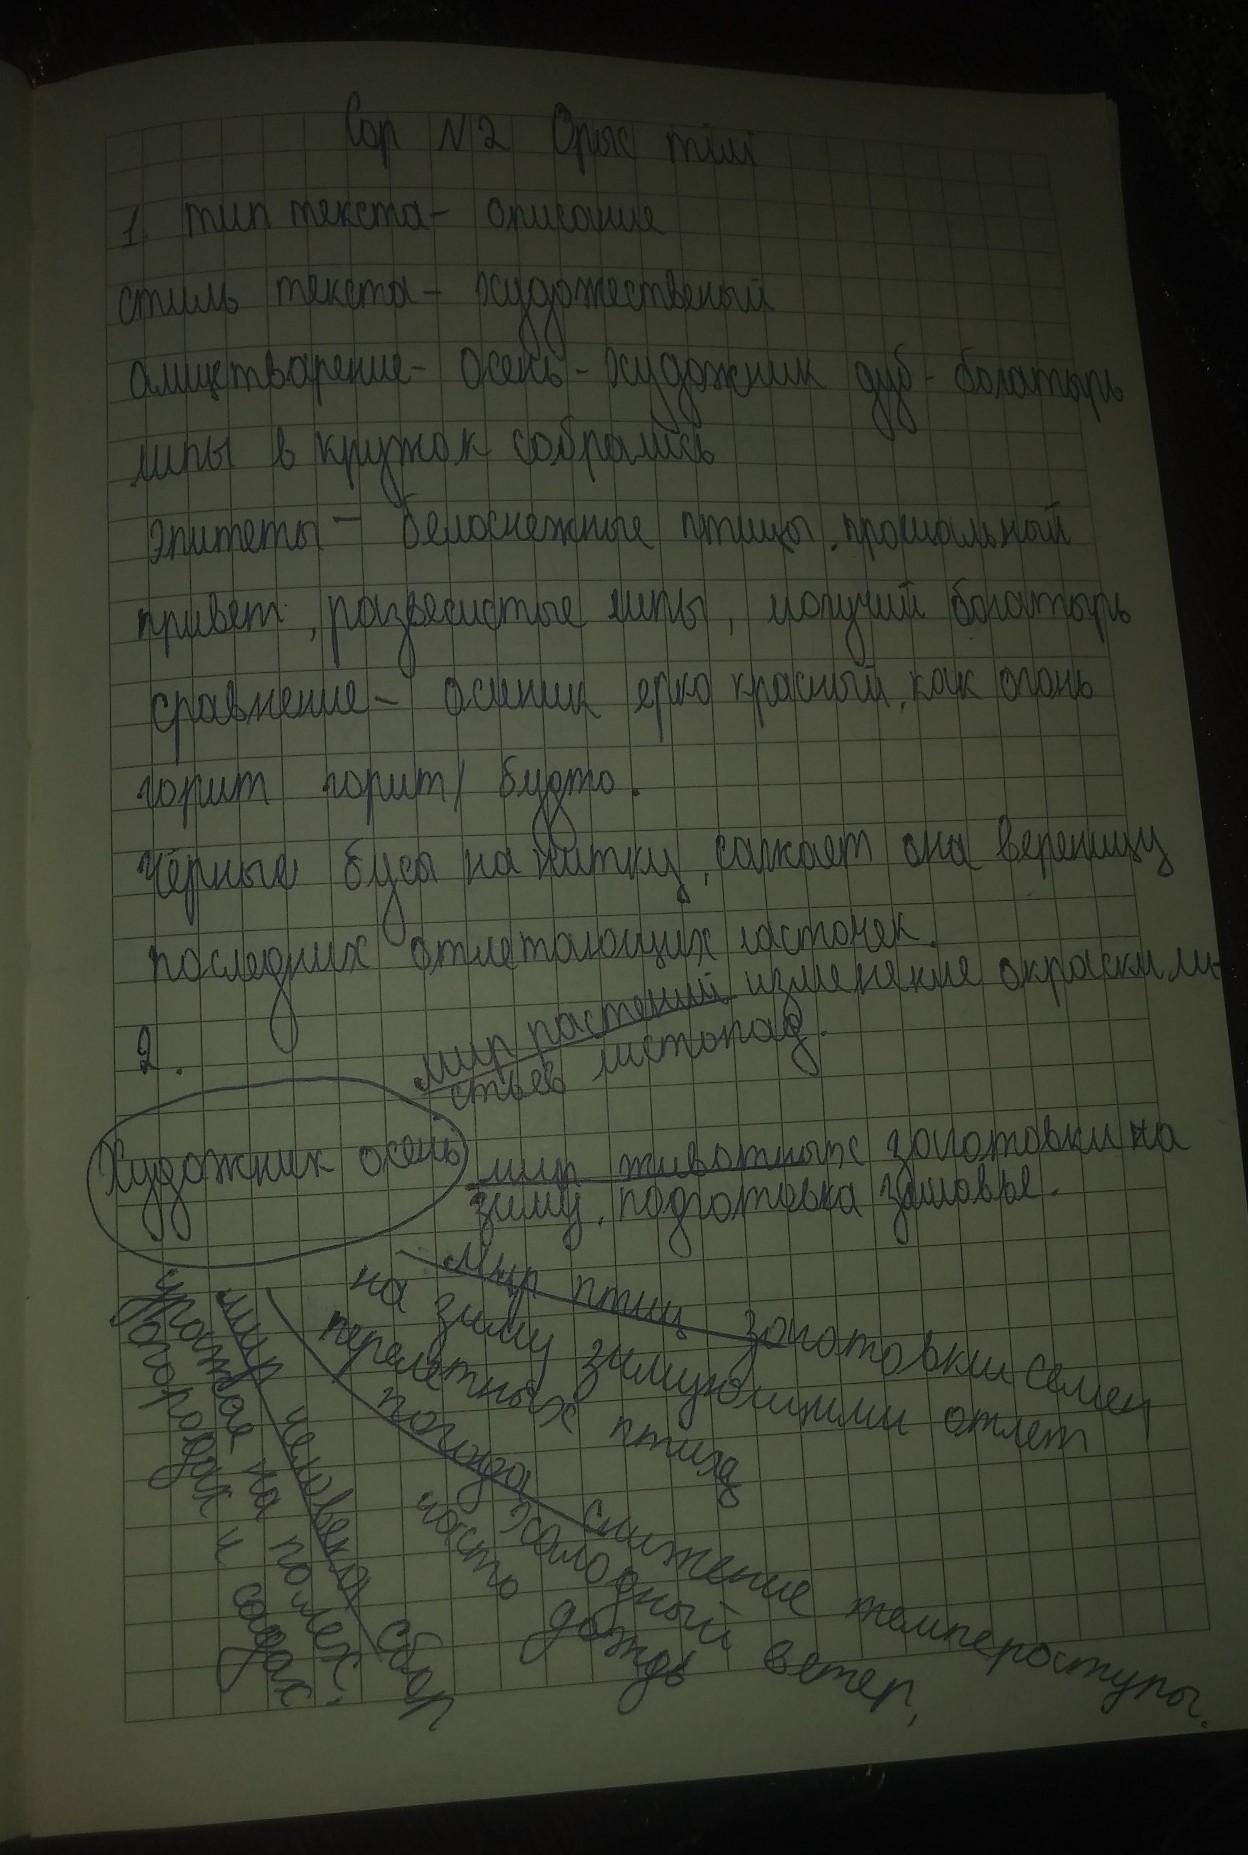 Сор №2 Орыс тілі
1. тип текста - описание
стиль текста - художественый
алицетварение - осень - художник дуб - богатырь
липы в кружок собрались
эпитеты - белоснежные птицы, прощальный
привет, развесистые липы, могучий богатырь
сравнение - осинник ярко красный, как огонь
горит горит / будто.
чёрные бусы на нитку, сажает она вереницу
последних отлетающих ласточек.
2.
мир растений изменение окраски ли-
стьев листопад.
Художник осень
мир животных заготовки на
зиму, подготовка зимовье.
мир птиц заготовки семен
на зиму зимующими отлет
перелетных птиц
погода снижение температуры.
холодный ветер,
часто дождь
мир человека сбор
урожая на полях,
огородах и садах